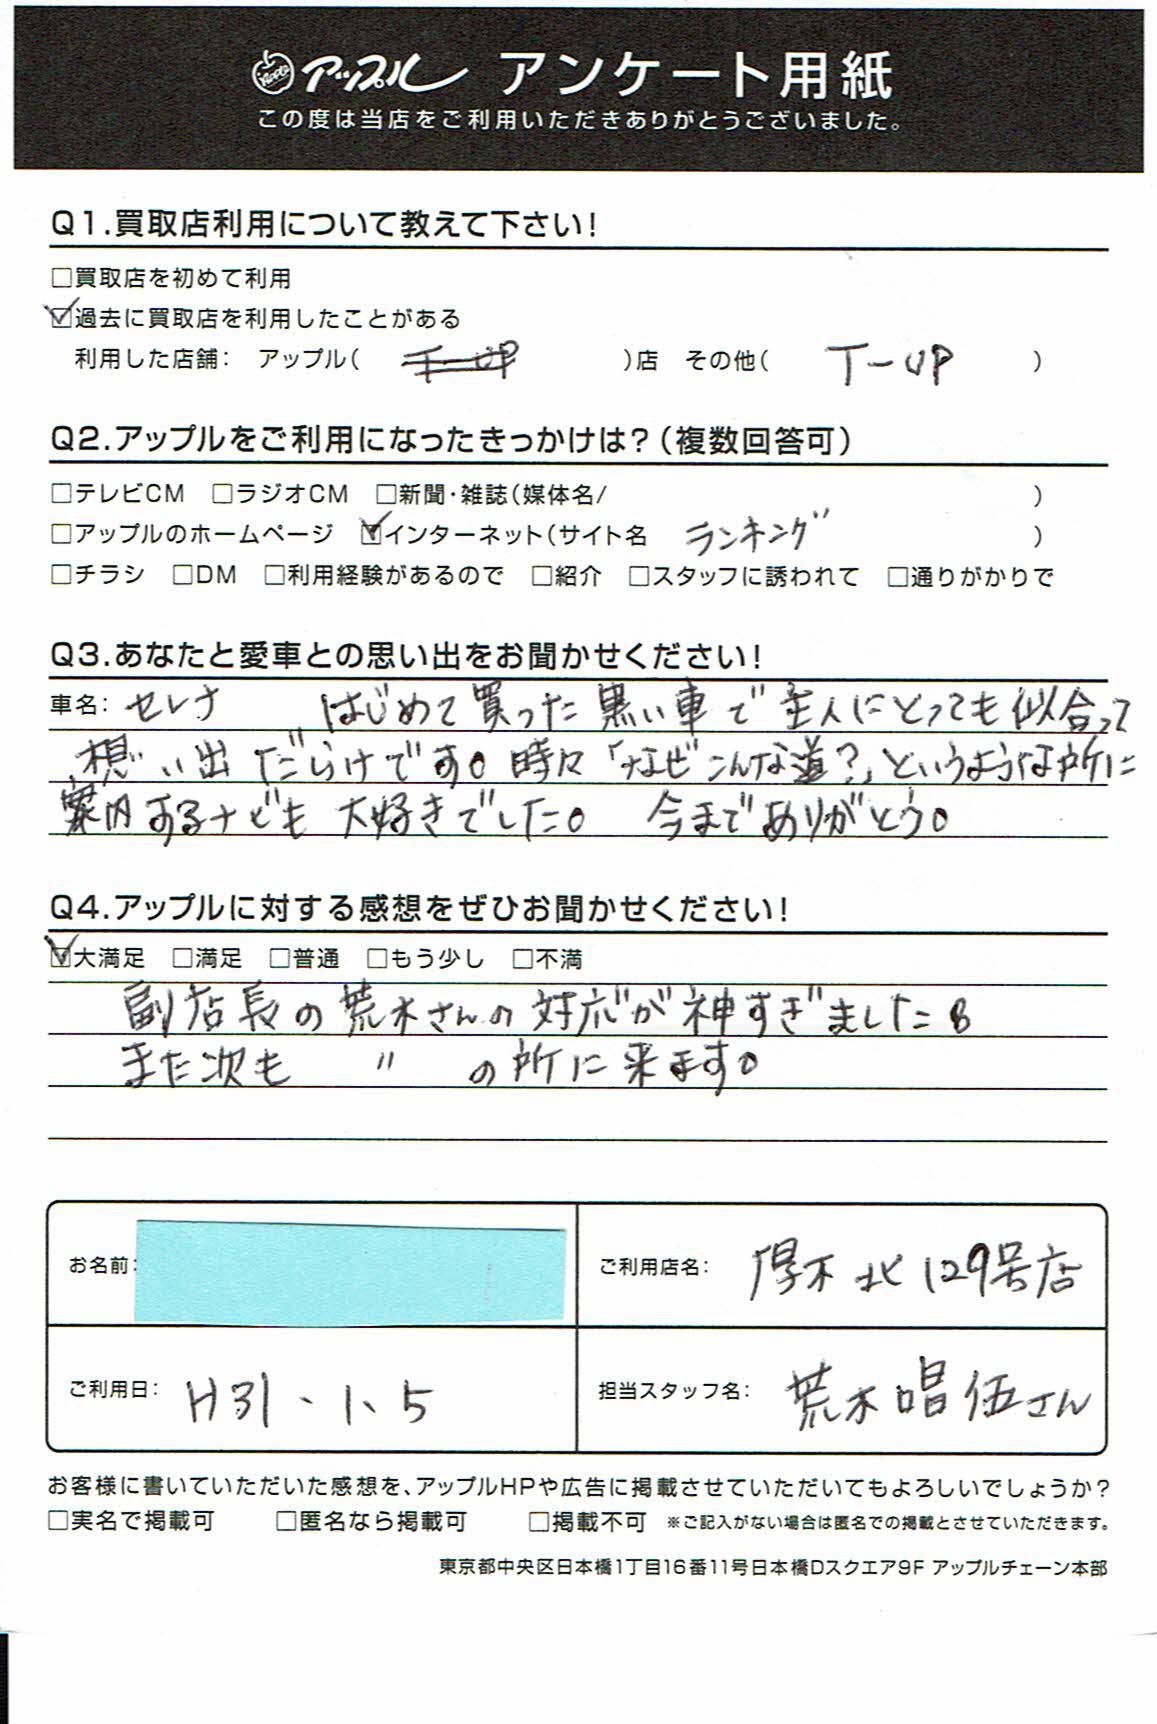 アップル アンケート用紙
この度は当店をご利用いただきありがとうございました。
Q1.買取店利用について教えて下さい!
□買取店を初めて利用
☑過去に買取店を利用したことがある
利用した店舗: アップル( T-UP )店 その他( T-UP )
Q2.アップルをご利用になったきっかけは?(複数回答可)
□テレビCM □ラジオCM □新聞・雑誌(媒体名/ )
□アップルのホームページ ☑インターネット(サイト名 ランキング )
□チラシ □DM □利用経験があるので □紹介 □スタッフに誘われて □通りがかりで
Q3.あなたと愛車との思い出をお聞かせください!
車名: セレナ はじめて買った黒い車で主人にとっても似合って
想い出だらけです。時々「なぜこんな道?」というような所に
案内するなども大好きでした。 今までありがとう。
Q4.アップルに対する感想をぜひお聞かせください!
☑大満足 □満足 □普通 □もう少し □不満
副店長の荒木さんの対応が神すぎました。
また次も 〃 の所に来ます。
お名前:
ご利用店名: 厚木北129号店
ご利用日: H31、1、5
担当スタッフ名: 荒木唱伍さん
お客様に書いていただいた感想を、アップルHPや広告に掲載させていただいてもよろしいでしょうか?
□実名で掲載可 □匿名なら掲載可 □掲載不可 ※ご記入がない場合は匿名での掲載とさせていただきます。
東京都中央区日本橋1丁目16番11号日本橋Dスクエア9F アップルチェーン本部